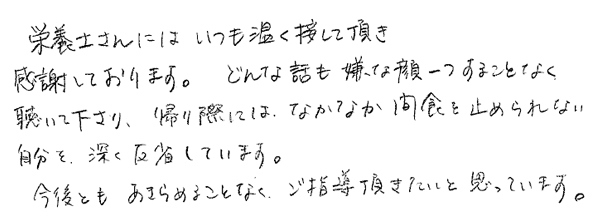 栄養士さんには いつも温く接して頂き
感謝しております。 どんな話も嫌な顔一つすることなく
聴いて下さり、帰り際には、なかなか間食を止められない
自分を、深く反省しています。
今後とも あきらめることなく、ご指導頂きたいと思っています。